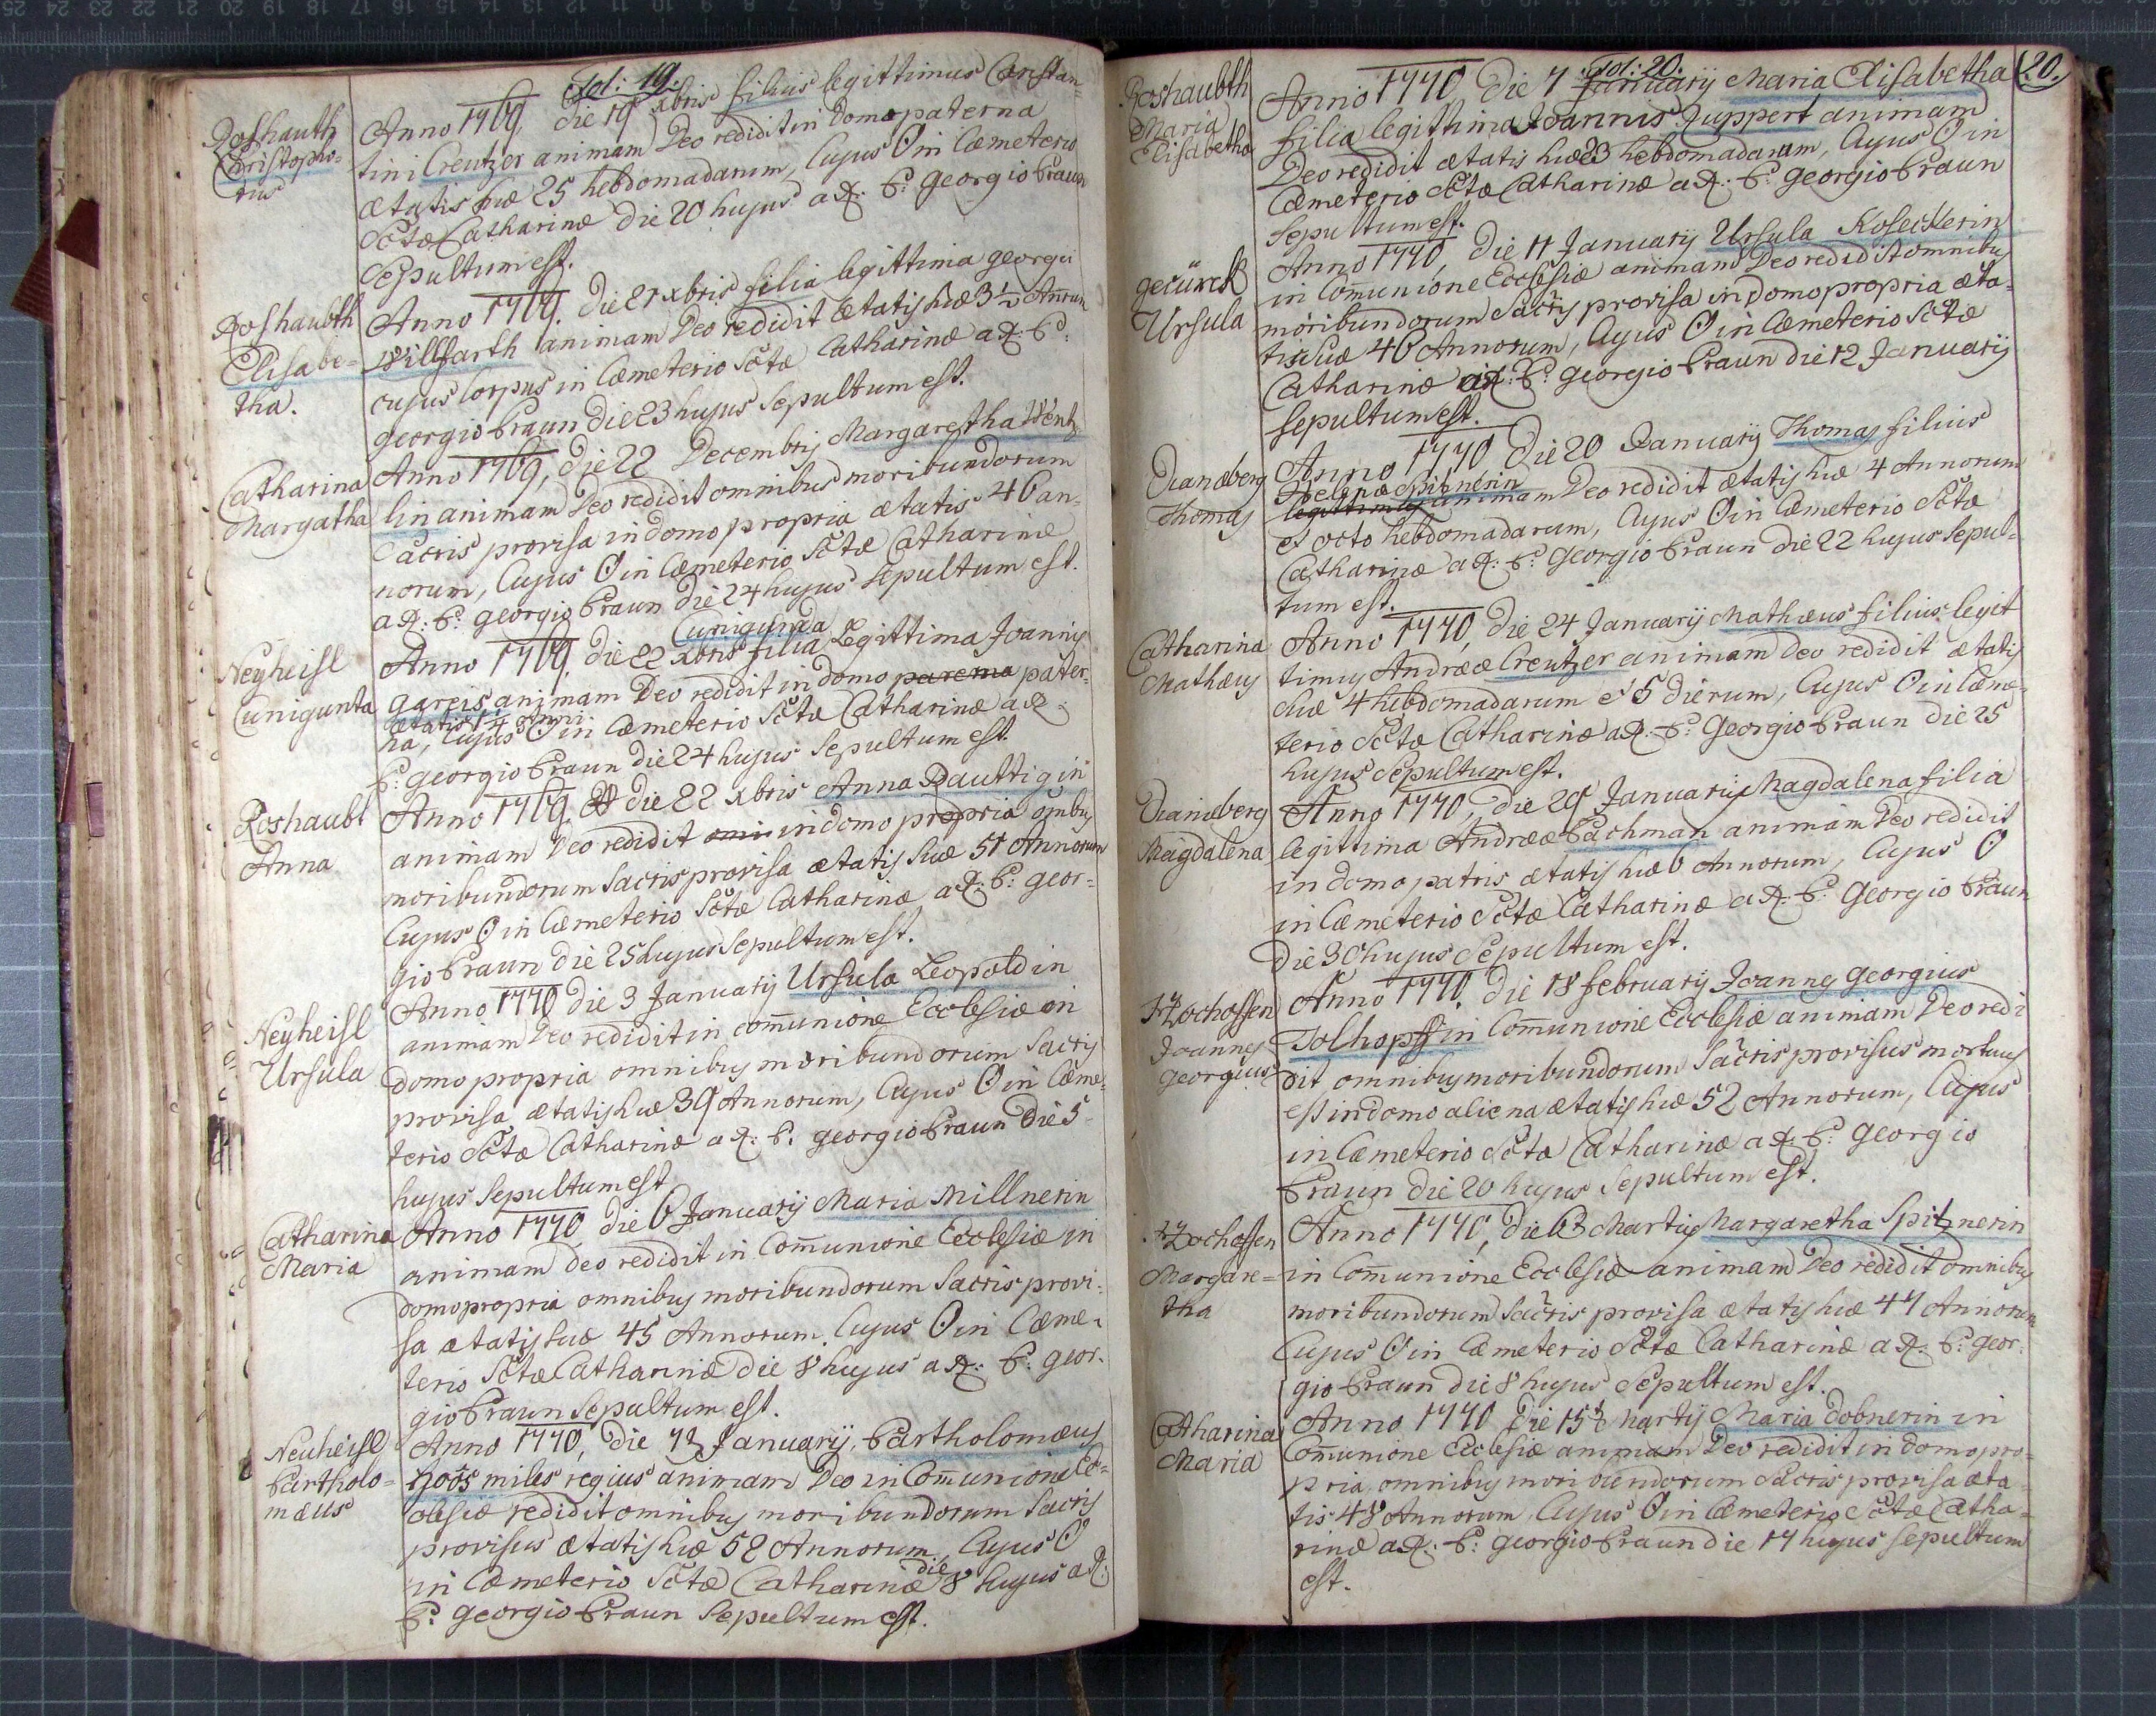 fol: 19.
Roshauth
Christopho=
rus
Anno 1769, die 19 xbris filius legittimus Constan=
tini Creutzer animam Deo redidit in domo paterna
ætatis suæ 25 hebdomadarum, Cujus O in Cæmeterio
Sctæ Catharinæ die 20 hujus a R: P: Georgio Praun
Sepultum est.
Roshaubth
Elisabe=
tha.
Anno 1769. die 21 xbris filia legittima georgii
Willfarth animam Deo redidit ætatis suæ 3½ Annorum
cujus Corpus in Cæmeterio Sctæ Catharinæ a R: P:
georgio Praun die 23 hujus Sepultum est.
Catharina
Margatha
Anno 1769, die 22 Decembris Margaretha Wentz
lin animam Deo redidit omnibus moribundorum
Sacris provisa in domo propria ætatis 46 an=
norum, Cujus O in Cæmeterio Sctæ Catharinæ
a R: P: georgio Praun die 24 hujus Sepultum est.
Neyheisl
Cunigunta
Cunigunda
Anno 1769, die 22 xbris filia Legittima Joannis
gareis animam Deo redidit in domo parerna pater=
ætatis 14 Anni
na, Cujus O in Cæmeterio Sctæ Catharinæ a R:
P: georgio Praun die 24 hujus Sepultum est.
Roshaubt
Anna
Anno 1769, die 22 xbris Anna Dauttigin
animam Deo redidit omi in domo propria omnibus
moribundorum Sacris provisa ætatis suæ 51 Annorum
Cujus O in Cæmeterio Sctæ Catharinæ a R: P: geor=
gio Praun die 25 hujus Sepultum est.
Neyheisl
Ursula
Anno 1770 die 3 Januarij Ursula Leopoldin
animam Deo redidit in communione Ecclesiæ in
domo propria omnibus moribundorum Sacris
provisa ætatis suæ 39 Annorum, Cujus O in Cæme=
terio Sctæ Catharinæ a R: P: georgio Praun die 5
hujus Sepultum est
Catharina
Maria
Anno 1770, die 6 Januarij Maria Millnerin
animam deo redidit in Communione Ecclesiæ in
domo propria omnibus moribundorum Sacris provi=
sa ætatis suæ 45 Annorum, Cujus O in Cæme=
terio Sctæ Catharinæ die 8 hujus a R: P: geor=
gio Praun Sepultum est.
Neuheisl
Partholo=
mæus
Anno 1770, die Januarij, Partholomæus
miles regius animam Deo in Communione Ec=
clesiæ redidit omnibus moribundorum Sacris
provisus ætatis suæ 58 Annorum, Cujus O
in Cæmeterio Sctæ Catharinæ die 8 hujus a R:
P: georgio Praun Sepultum est.
fol: 20.
20.
Roshaubth
Maria
Elisabetha
Anno 1770, die 7 Januarij Maria Elisabetha
filia legittima Joannis Ruppert animam
Deo redidit ætatis suæ 23 hebdomadarum, Cujus O in
Cæmeterio Sctæ Catharinæ a R: P: georgio Praun
Sepultum est.
Ursula
Anno 1770, die 11 Januarij Ursula Koseckerin
in Communione Ecclesiæ animam Deo redidit omnibus
moribundorum Sacris provisa in domo propria æta=
tis suæ 46 Annorum, Cujus O in Cæmeterio Sctæ
Catharinæ a R: P: georgio Praun die 12 Januarij
Sepultum est.
Thomas
Anno 1770 die 20 Januarij Thomas filius
Helenæ Spitnerin
legittimus animam Deo redidit ætatis suæ 4 Annorum
et octo hebdomadarum, Cujus O in Cæmeterio Sctæ
Catharinæ a R: P: Georgio Praun die 22 hujus Sepul=
tum est.
Catharina
Mathæus
Anno 1770, die 24 Januarij Mathæus filius legit
timus Andreæ Creutzer animam Deo redidit ætatis
suæ 4 hebdomadarum et 5 dierum, Cujus O in Cæme=
terio Sctæ Catharinæ a R: P: Georgio Praun die 25
hujus Sepultum est.
Magdalena
Anno 1770, die 29 Januarij Magdalena filia
legittima Andreæ Pachman animam Deo redidit
in domo patris ætatis suæ 6 Annorum, Cujus O
in Cæmeterio Sctæ Catharinæ a R: P: Georgio Praun
die 30 hujus Sepultum est.
Joannes
georgius
Anno 1770, die 18 february Joannes georgius
Tolhopff in Communione Ecclesiæ animam Deo redi
dit omnibus moribundorum Sacris provisus mortuus
est in domo aliena ætatis suæ 52 Annorum, Cujus
in Cæmeterio Sctæ Catharinæ a R: P: Georgio
Praun die 20 hujus Sepultum est.
Margare=
tha
Anno 1770, die 6 Martij Margaretha Spitznerin
in Communione Ecclesiæ animam Deo redidit omnibus
moribundorum Sacris provisa ætatis suæ 47 Annorum
Cujus O in Cæmeterio Sctæ Catharinæ a R: P: geor=
gio Praun die 8 hujus Sepultum est.
Catharina
Maria
Anno 1770 die 15 Martij Maria dobnerin in
Communione Ecclesiæ animam Deo redidit in domo pro=
pria omnibus moribundorum Sacris provisa æta=
tis 48 Annorum, Cujus O in Cæmeterio Sctæ Catha=
rinæ a R: P: georgio Praun die 17 hujus Sepultum
est.